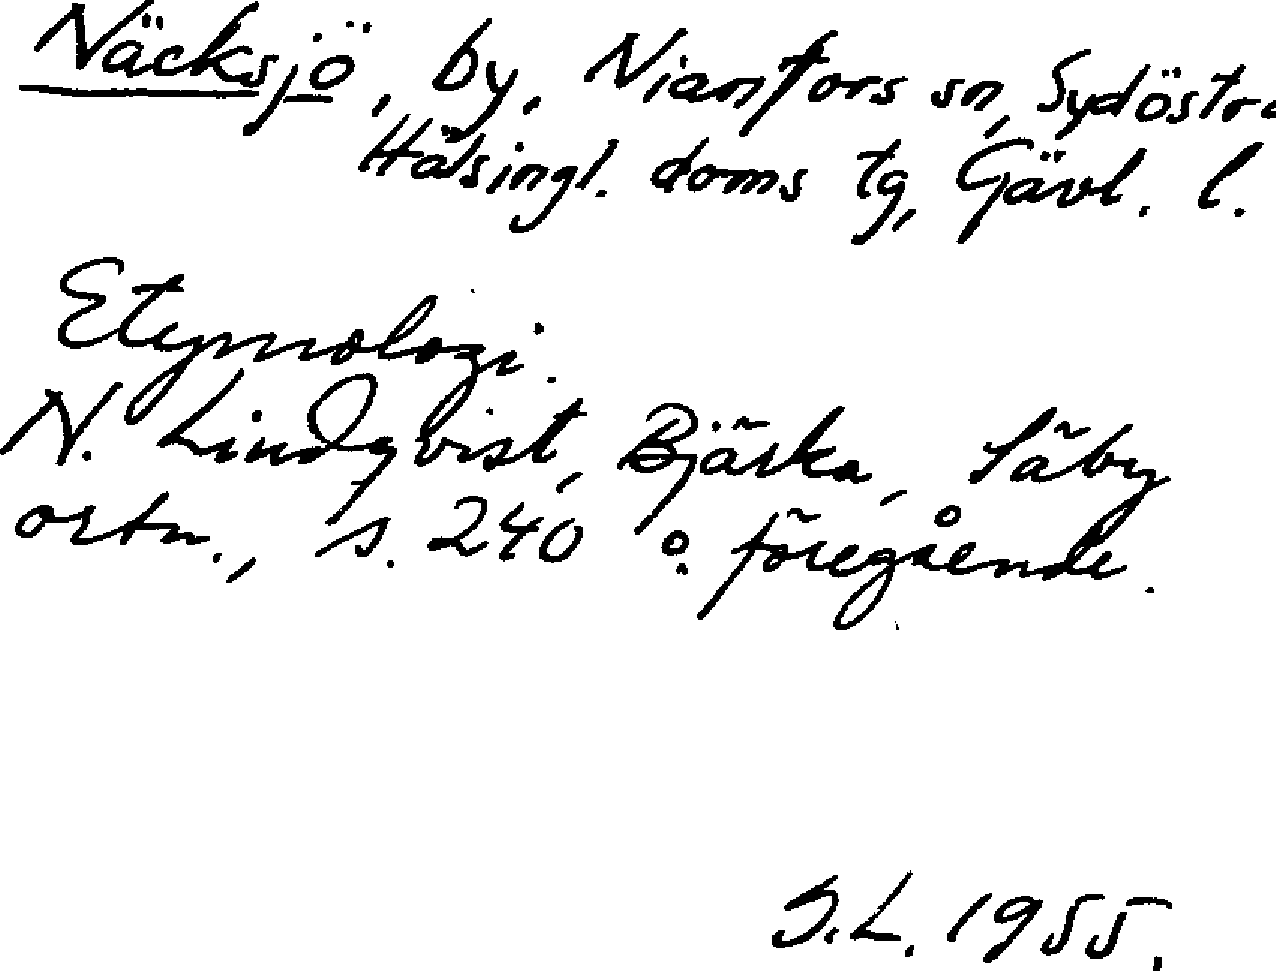 Näcksjö, by, Nianfors sn, Sydöstra
Hälsingl. doms tg, Gävl. l.
Etymologi.
N. Lindqvist, Bjärka, Säby
ortn., s. 240 o. föregående.
S.L. 1955.